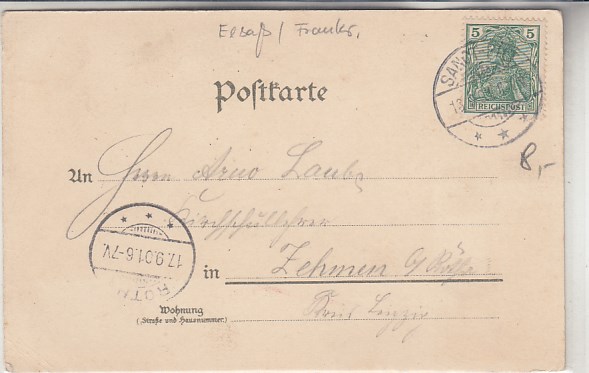 Elsaß / Frankr.
5 5
REICHSPOST
SAN
Postkarte
8,-
An Herrn Arno Laube
Kirchschullehrer
17.9.01.6-7V.
RÖTH
in Zehmen b/ Rötha
Kreis Leipzig
Wohnung
(Straße und Hausnummer.)